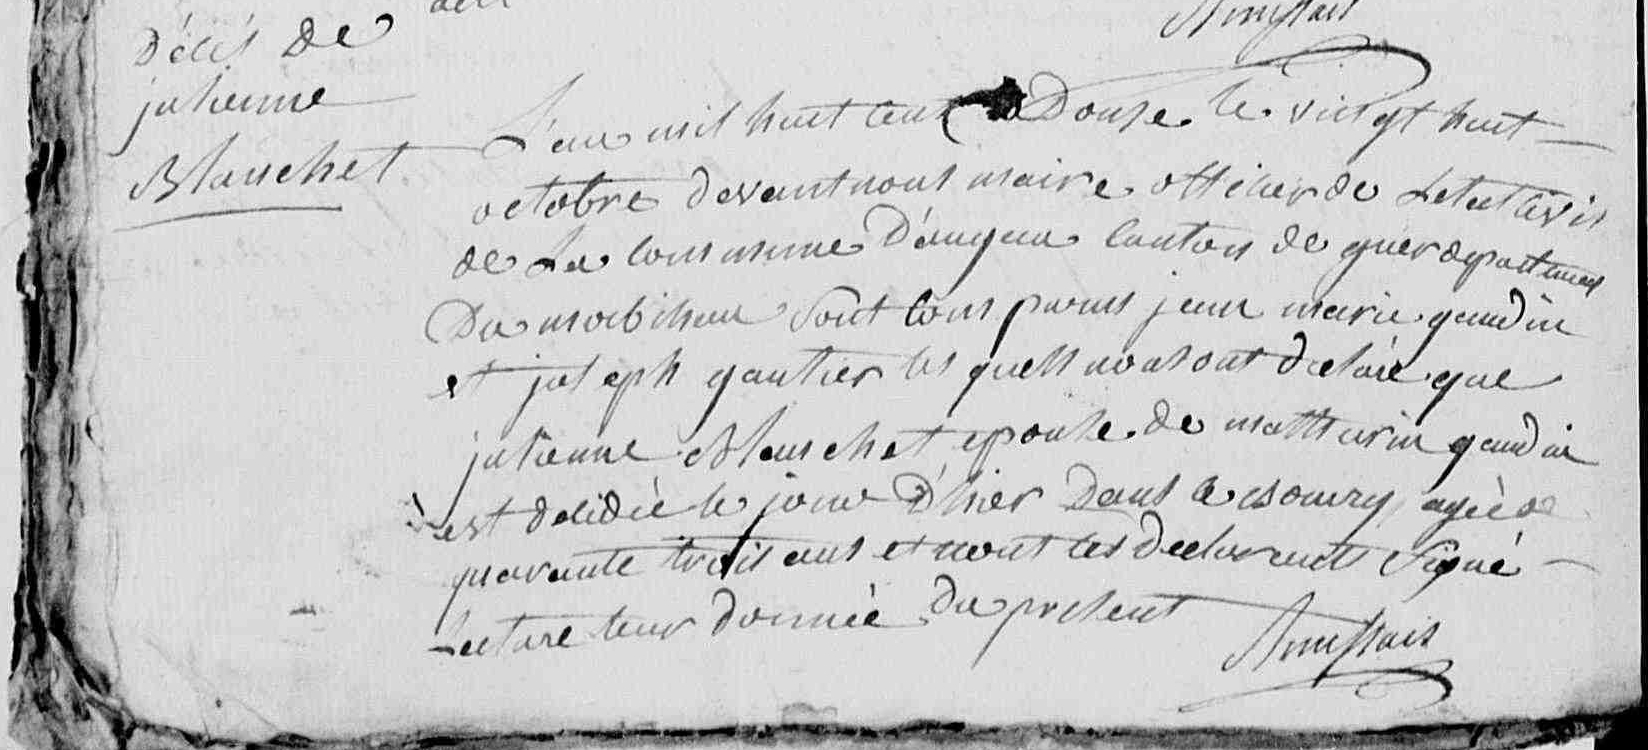 Décès de
julienne
Blanchet
L'an mil huit cent Douse le vingt huit
octobre devant nous maire officier de Letat civil
de La commune D'augan canton de guer departement
Du morbihan sont comparus jean marie gaudin
et joseph gautier les quells nous ont déclaré que
julienne Blanchet epouse de matturin gaudin
est décidée le jour D'hier Dans le agée de
quarante trois ans et n'ont les declarents signé
Lecture leur donnée Du present